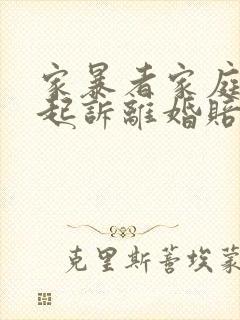 家暴者家庭
起訴離婚賠
克里斯蒂埃蒙